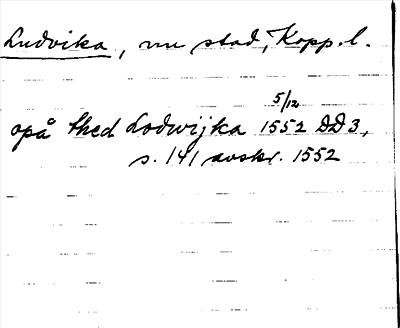 Ludvika, nu stad, Kopp. l.
5/12
opå thed Lodwijka 1552 DD 3,
s. 141 avskr. 1552